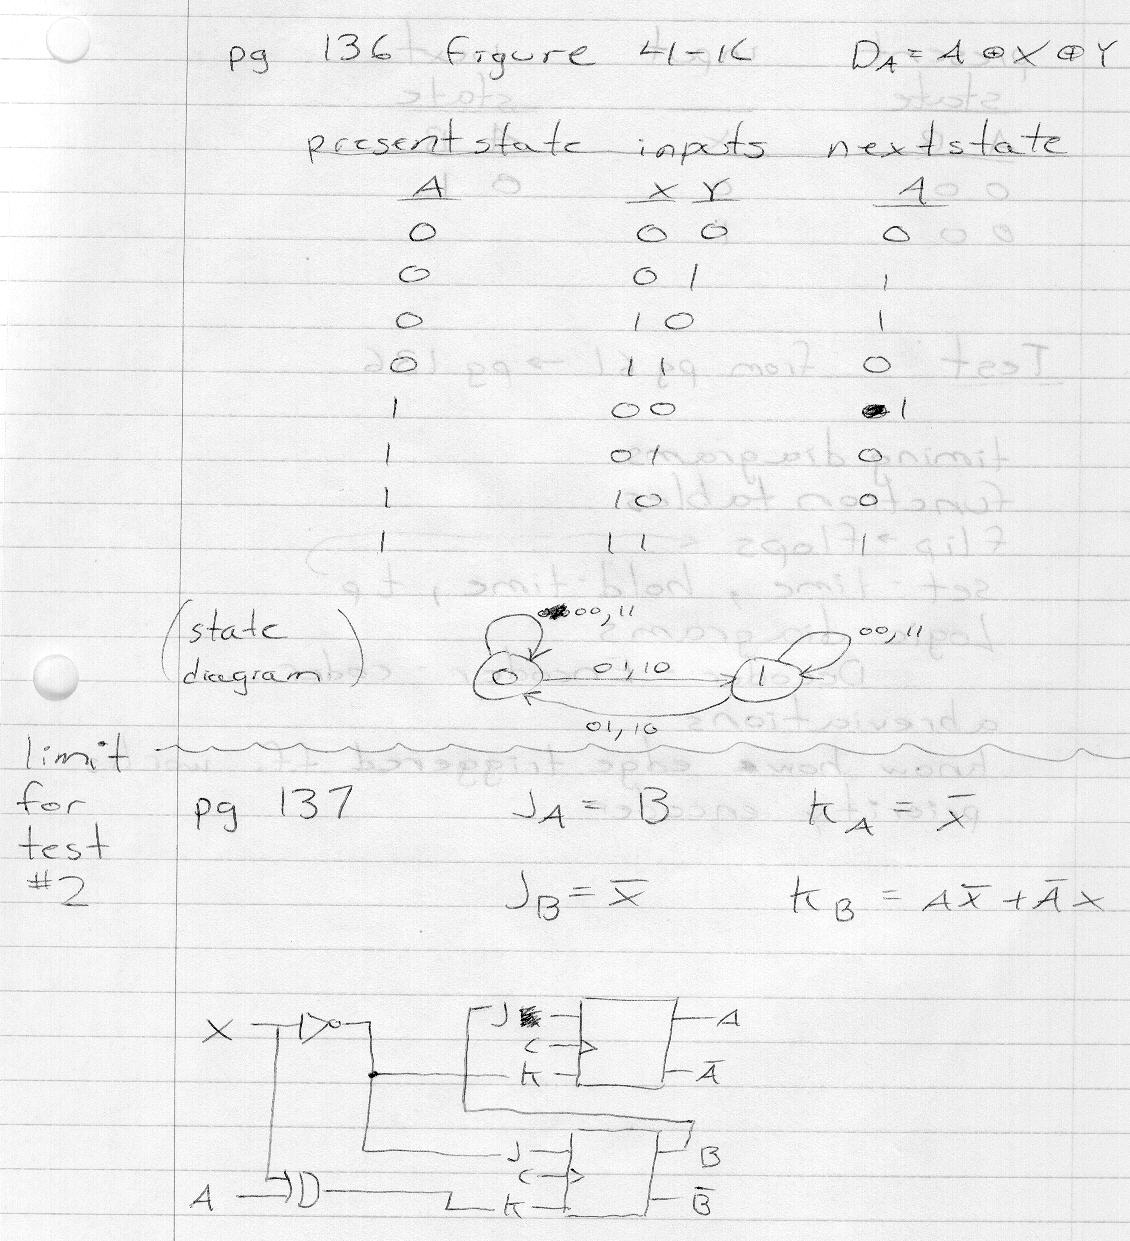 pg 136 figure 4-16 D_A = A ⊕ X ⊕ Y
present state inputs next state
A X Y A
0 0 0 0
0 0 1 1
0 1 0 1
0 1 1 0
1 0 0 1
1 0 1 0
1 1 0 0
1 1 1 1
(state diagram)
00,11
00,11
0 01,10 1
01,10
limit for test #2
pg 137 J_A = B K_A = x̄
J_B = x̄ K_B = Ax̄ + Āx
X J A
C
K Ā
J B
C
A K B̄